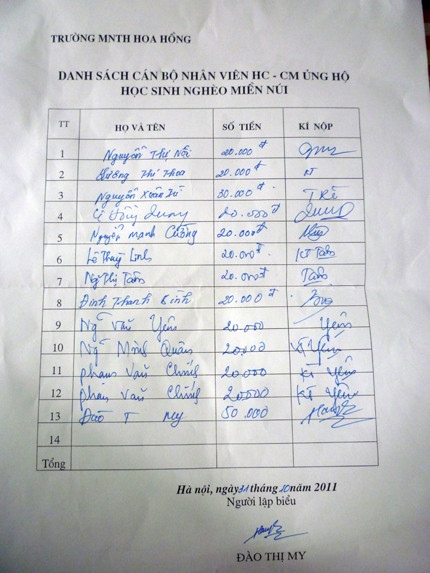 TRƯỜNG MNTH HOA HỒNG
DANH SÁCH CÁN BỘ NHÂN VIÊN HC - CM ỦNG HỘ
HỌC SINH NGHÈO MIỀN NÚI
TT HỌ VÀ TÊN SỐ TIỀN KÍ NỘP
1 Nguyễn Thị 20.000đ
2 Dương Thị Thoa 20.000đ KT
3 Nguyễn Xuân 30.000đ
4 Lê 20.000đ
5 Nguyễn Mạnh Cường 20.000đ
6 Lê Thuỳ Linh 20.000đ KT Tâm
7 Ng Thị Tâm 20.000đ Tâm
8 Đinh Thanh Bình 20.000đ
9 Ng Văn Yên 20.000 Yên
10 Ng Minh Quân 20000 Kí Yên
11 Phạm Văn Chính 20.000 Kí Yên
12 Phạm Văn Chính 20000 Kí Yên
13 Đào T My 50.000
14
Tổng
Hà nội, ngày 31 tháng 10 năm 2011
Người lập biểu
ĐÀO THỊ MY